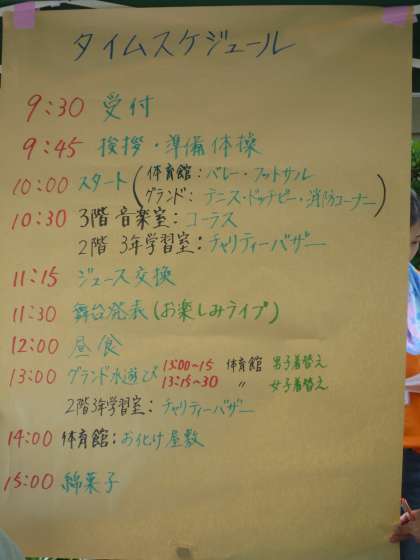 タイムスケジュール
9:30 受付
9:45 挨拶・準備体操
10:00 スタート(体育館:バレー・フットサル
グランド:テニス・ドッチビー・消防コーナー)
10:30 3階 音楽室:コーラス
2階 3年学習室:チャリティーバザー
11:15 ジュース交換
11:30 舞台発表(お楽しみライブ)
12:00 昼食
13:00 グランド水遊び 13:00~15 体育館 男子着替え
13:15~30 〃 女子着替え
2階3年学習室:チャリティーバザー
14:00 体育館:お化け屋敷
15:00 綿菓子